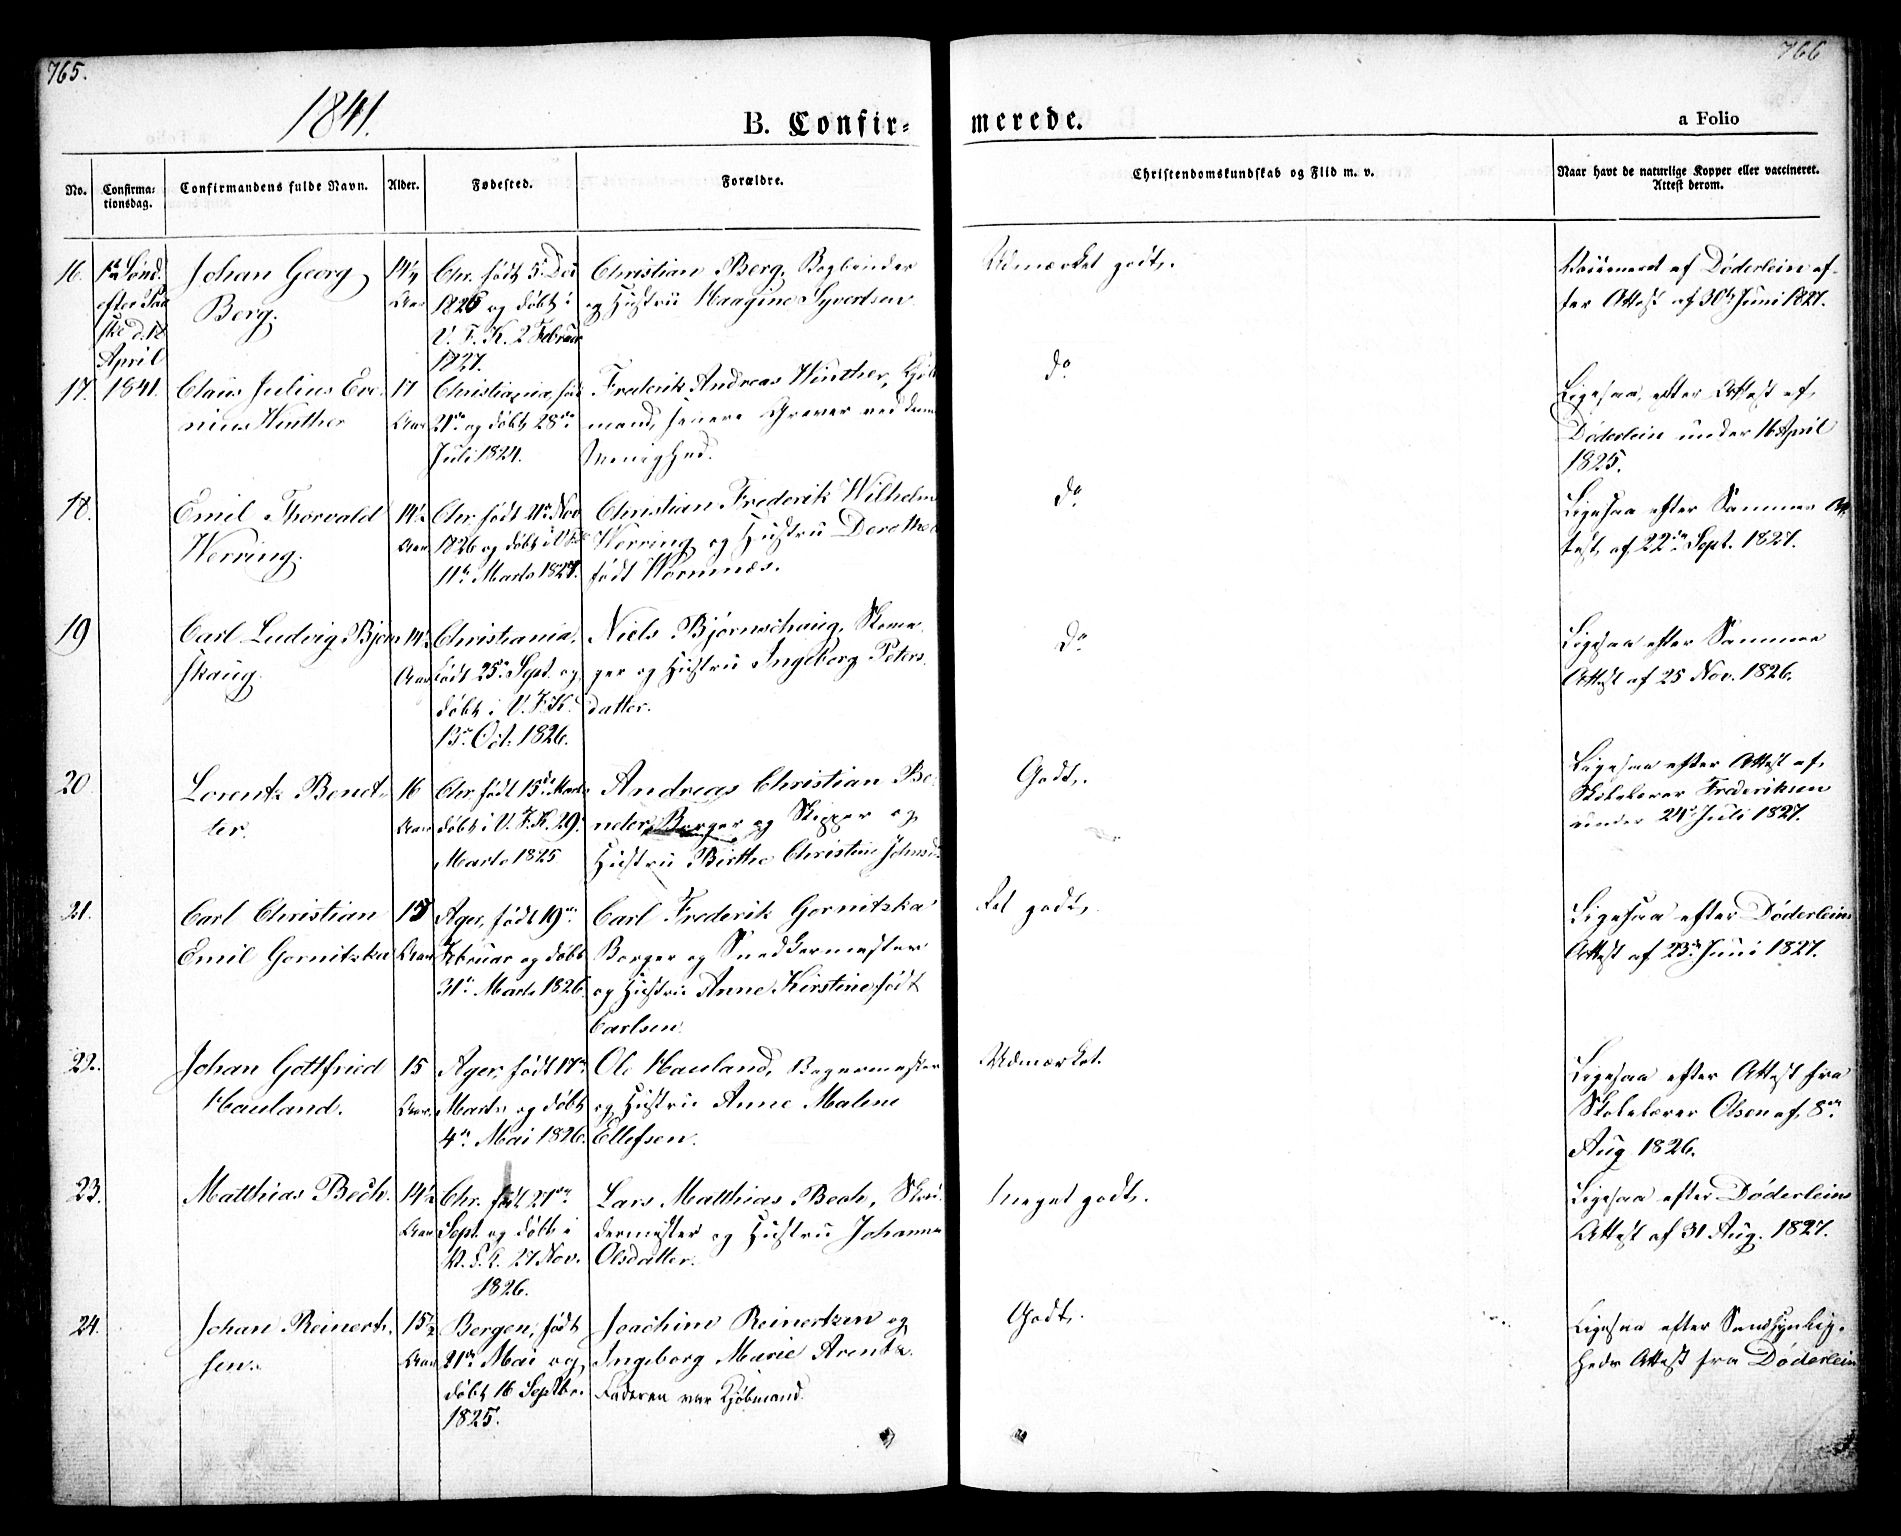 765.
766
1841.
B. Confir-
merede.
a Folio
No.
Confirma-
tionsdag.
Confirmandens fulde Navn.
Alder.
Fødested.
Forældre.
Christendomskundskab og Flid m. v.
Naar havt de naturlige Kopper eller vaccineret.
Attest derom.
16.
Sønd.
efter Paa
ske d. 18
April
1841.
Johan Georg
Berg.
14½
Aar
Chr. født 5. Dec
1826 og døbt i
V. F. K. 2 Februar
1827.
Christian Berg, Bogbinder
og Hustru Maagine Syvertsen
Udmærket godt.
Vaccineret af Døderlein ef-
ter Attest af 30te Juni 1827.
17.
Claus Julius Ere-
nius Winther
17
Aar
Christiania, fød
21de og døbt 28de
Juli 1824.
Frederik Andreas Winther, Kjøb
mand, senere Graver ved denne
Menighed.
do
Ligesaa, efter Attest af
Døderlein under 16 April
1825.
18.
Emil Thorvald
Werring.
14½
Aar
Chr. født 21de Nov
1826 og døbt i V. F. K.
11te Marts 1827.
Christian Frederik Wilhelm
Werring og Hustru Dorethea
født Wormnæs.
do
Ligesaa efter Sammes At
test, af 22de Sept. 1827.
19
Carl Ludvig Bjørn
skaug.
14½
Aar
Christiania,
født 25de Sept. og
døbt i V. F. K.
13de Oct. 1826.
Niels Bjørnschaug, Skoma-
ger og Hustru Ingeborg Peters-
datter.
do
Ligesaa efter Sammes
Attest af 25 Nov. 1826.
20
Lorentz Benct-
ter.
16
Aar
Chr født 15de Marts
døbt i V. F. K. 29
Marts 1825
Andreas Christian Be-
neter, Borger og Skipper og
Hustru Birthe Christine Johnsd
Godt.
Ligesaa efter Attest af
Skolelærer Frederiksen
under 24de Juli 1827.
21.
Carl Christian
Emil Gornitzka
15
Aar
Ager, født 19de
Februar og døbt
31te Marts 1826.
Carl Frederik Gornitzka
Borger og Snedkermester
og Hustru Anne Kirstine, født
Carlsen.
Ret godt.
Ligesaa efter Døderleins
Attest af 23de Juni 1827.
22.
Johan Gottfried
Hauland.
15
Aar.
Ager, født 17de
Marts og døbt
4de Mai 1826.
Ole Hauland, Bagermester
og Hustru Anne Malene
Ellefsen.
Udmærket.
Ligesaa efter Attest fra
Skolelærer Olsen af 8de
Aug 1826.
23.
Matthias Bech.
14½
Aar
Chr. født 21de
Sept. og døbt i
27 Nov.
1826.
Lars Matthias Bech, Skræ-
dermester og Hustru Johanne
Olsdatter.
Meget godt.
Ligesaa efter Døderleins
Attest af 31 Aug. 1827.
24.
Johan Reinert-
sen.
15½
Aar
Bergen, født
21de Mai og
døbt 16 Septbr.
1825.
Joachim Reinertzen og
Ingeborg Marie Arentz.
Faderen var Kjøbmand.
Godt.
Ligesaa efter Sandsynlig-
heds Attest fra Døderlein